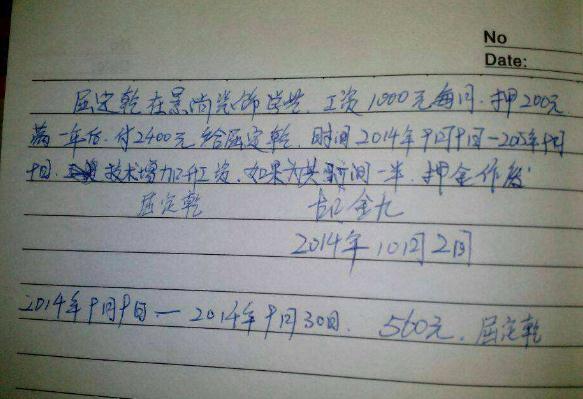 No
Date:
屈定乾在景尚装饰学共。工资1000元每月。押200元
满一年后,付2400元给屈定乾。时间2014年9月9日—2015年9月
9日。技术增加涨工资。如果为其时间一半,押金作废
屈定乾 金九
2014年10月2日
2014年9月9日—2014年9月30日. 560元. 屈定乾